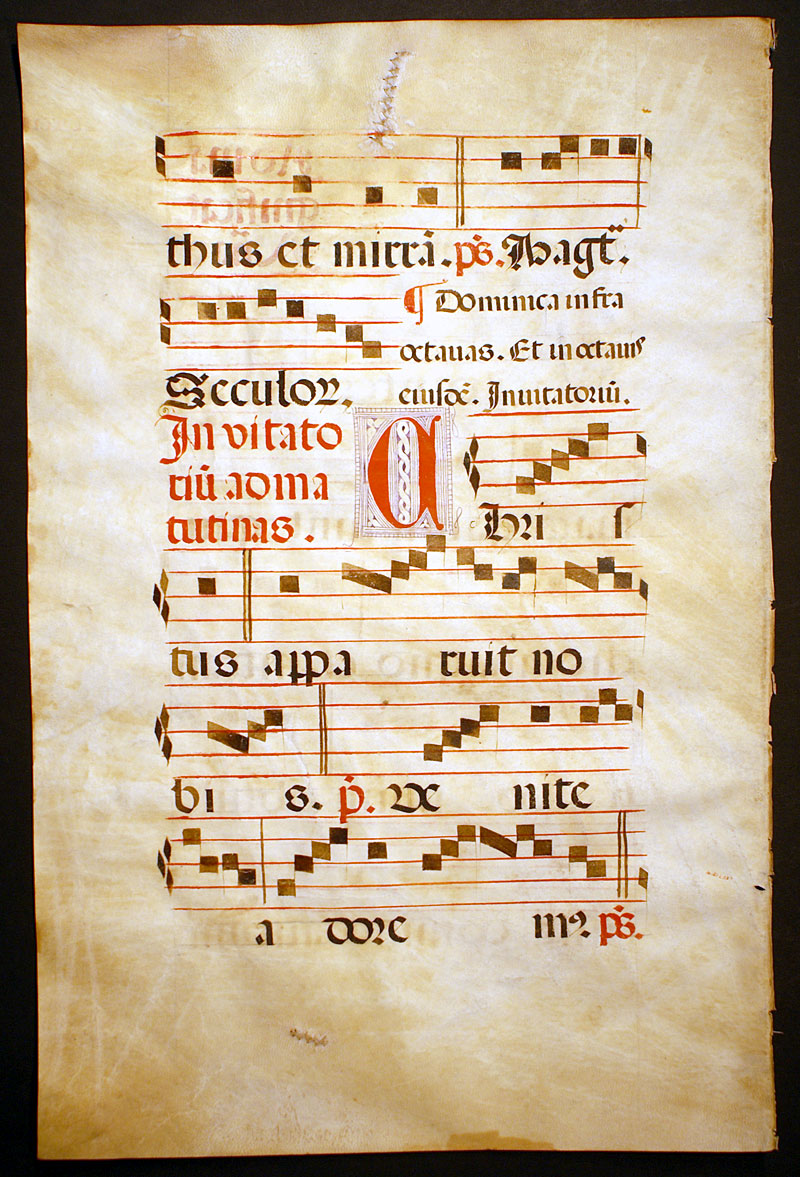 thus et mirrā. ps̄. Magt̄.
¶ Dominica infra
octauas. Et in octauis
Seculoꝝ. eiusdē. Inuitatoriū.
Inuitato
riū ad ma
tutinas.
Chri s
tus appa ruit no
bi s. p̄. Ve nite
a dore mꝰ ps̄.